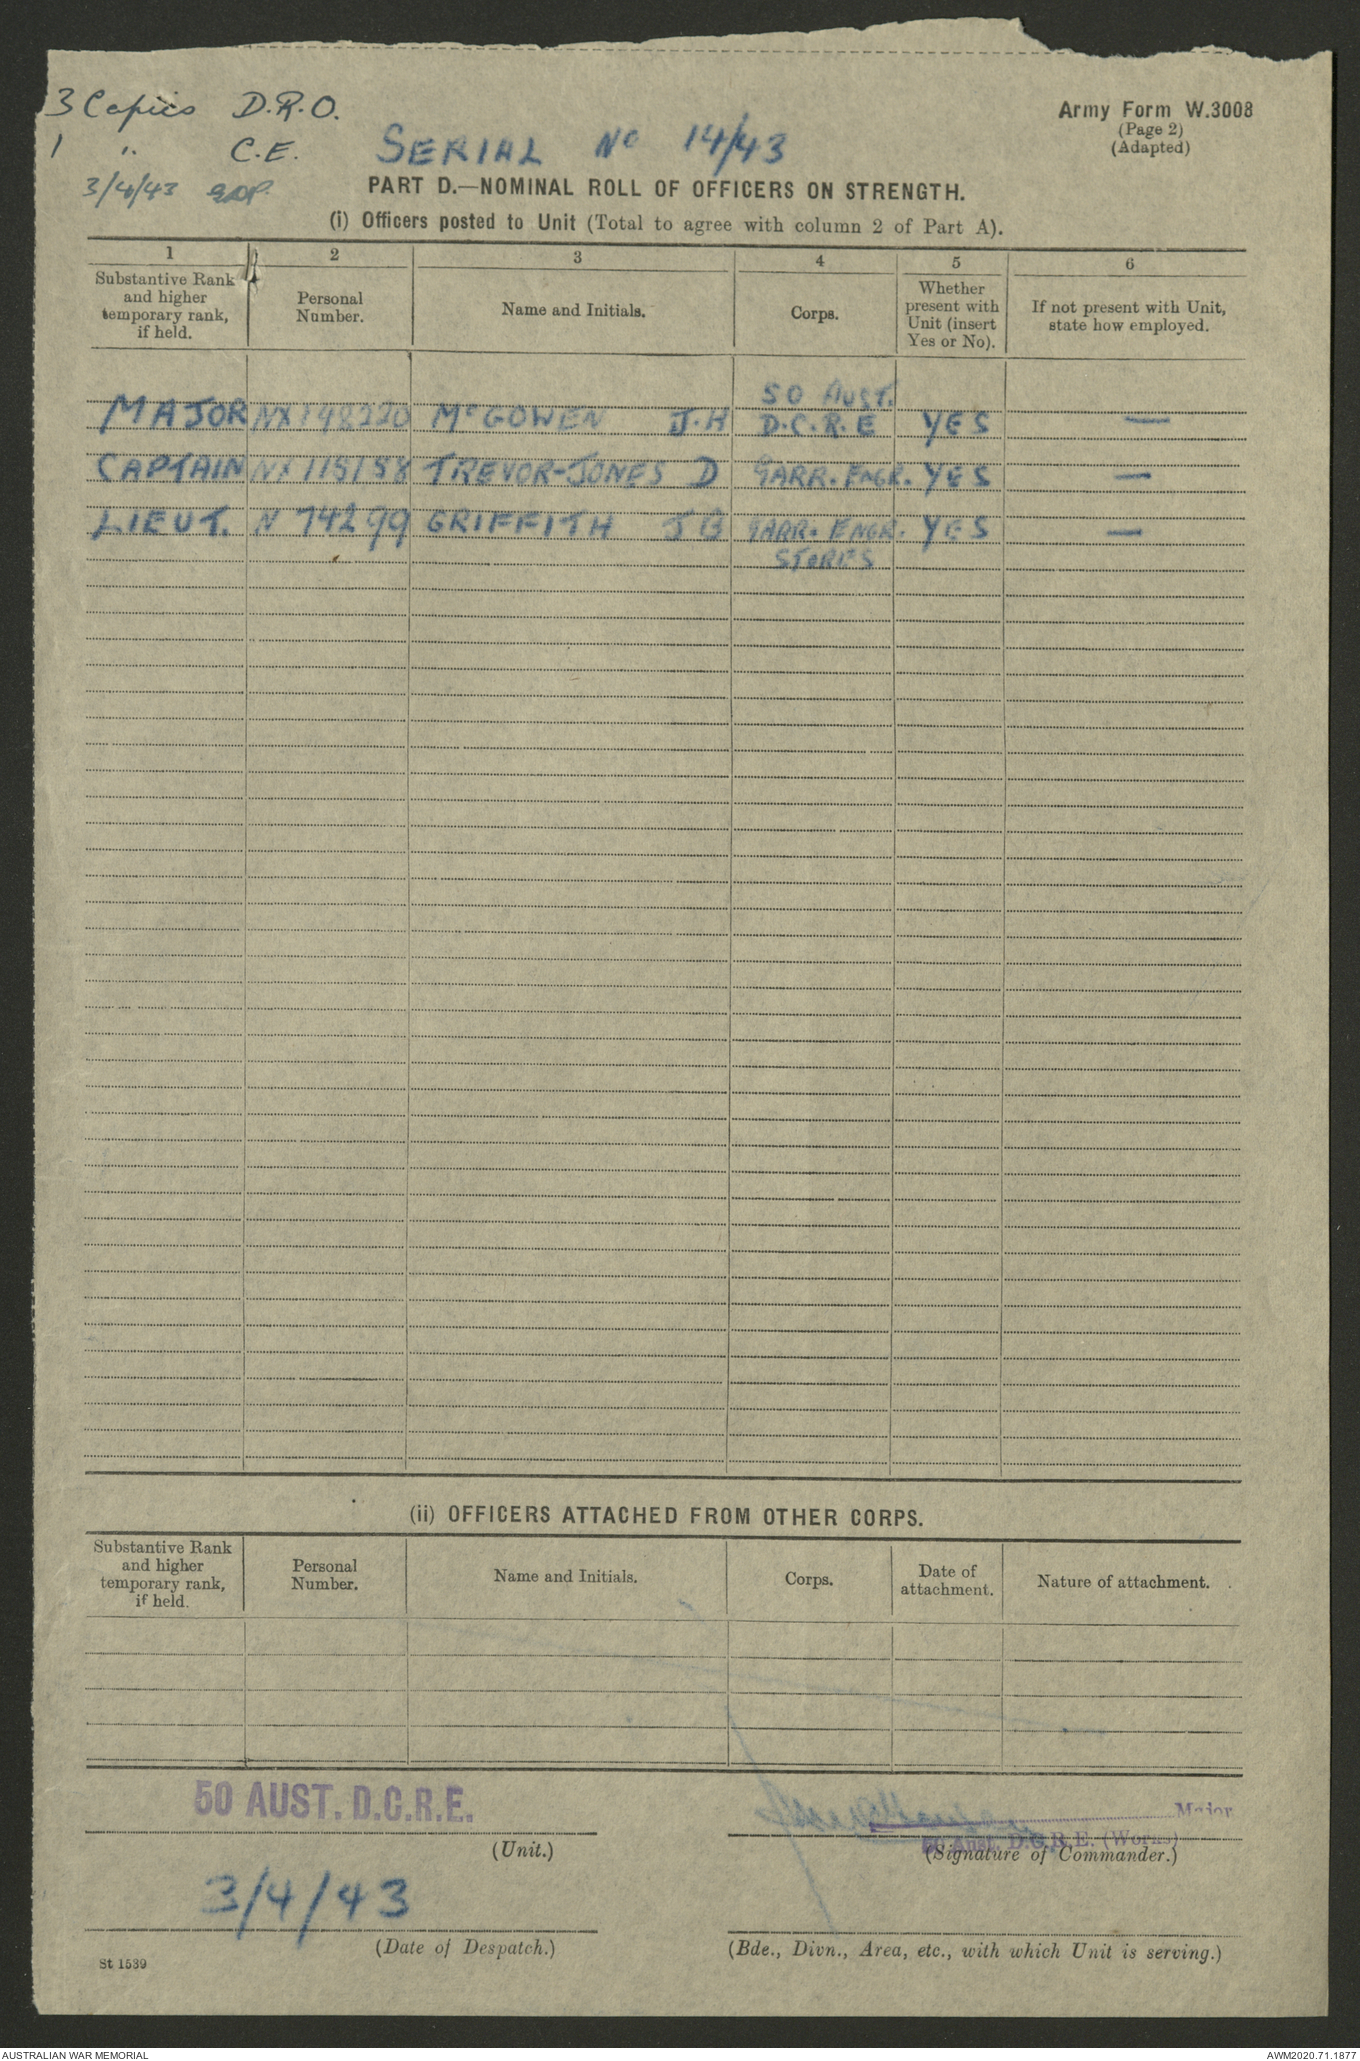 3 Copies D.R.O.
1 " C.E.
3/4/43
SERIAL No 14/43
Army Form W.3008
(Page 2)
(Adapted)
PART D.—NOMINAL ROLL OF OFFICERS ON STRENGTH.
(i) Officers posted to Unit (Total to agree with column 2 of Part A).
1 2 3 4 5 6
Substantive Rank and higher temporary rank, if held. Personal Number. Name and Initials. Corps. Whether present with Unit (insert Yes or No). If not present with Unit, state how employed.
50 AUST.
MAJOR NX148220 McGOWEN J.H D.C.R.E YES —
CAPTAIN NX115158 TREVOR-JONES D GARR. ENGR. YES —
LIEUT. N 74299 GRIFFITH J B GARR. ENGR. YES —
STORES
(ii) OFFICERS ATTACHED FROM OTHER CORPS.
Substantive Rank and higher temporary rank, if held. Personal Number. Name and Initials. Corps. Date of attachment. Nature of attachment.
50 AUST. D.C.R.E.
(Unit.)
Major
50 Aust. D.C.R.E. (Works)
(Signature of Commander.)
3/4/43
(Date of Despatch.)
(Bde., Divn., Area, etc., with which Unit is serving.)
St 1539
AUSTRALIAN WAR MEMORIAL
AWM2020.71.1877